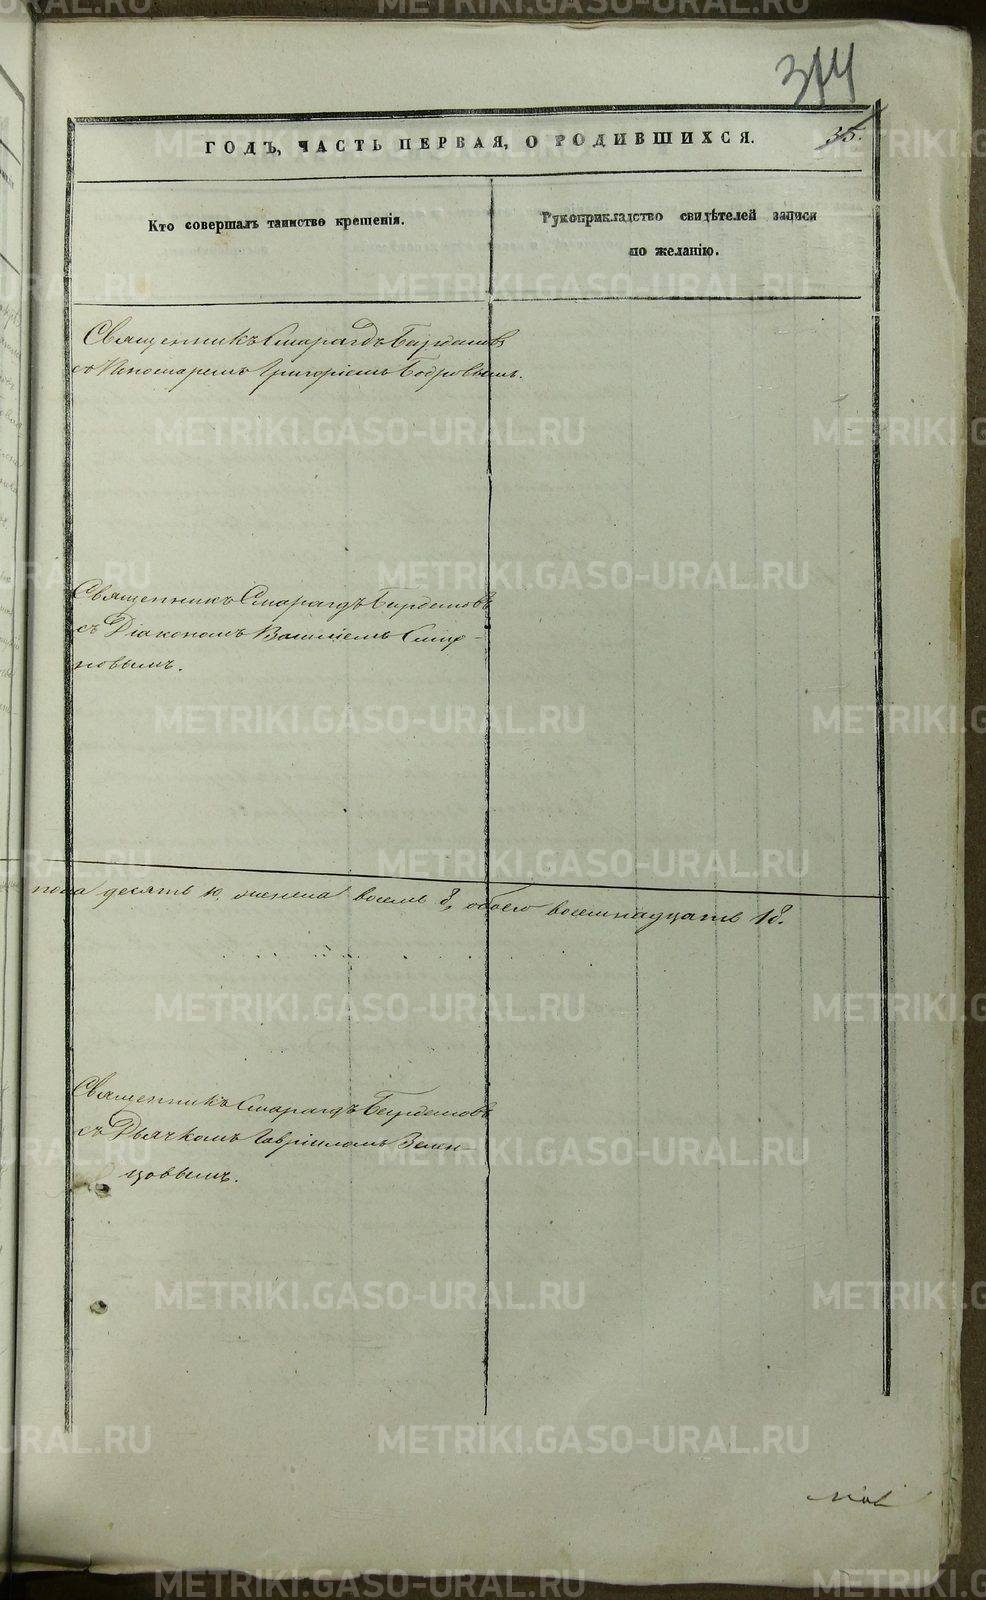 314
ГОДЪ, ЧАСТЬ ПЕРВАЯ, О РОДИВШИХСЯ.
35.
Кто совершалъ таинство крещенія.
Рукоприкладство свидѣтелей записи
по желанію.
Священникъ Смарагдъ Бирюковъ
съ Пономаремъ Григоріемъ Бобровымъ.
Священникъ Смарагдъ
съ Діакономъ Василіемъ
новымъ.
пола десять 10, женска восемь 8, обоего восемнадцать 18.
Священникъ Смарагдъ
съ Дьячкомъ Гавріиломъ Зелен-
цовымъ.
METRIKI.GASO-URAL.RU